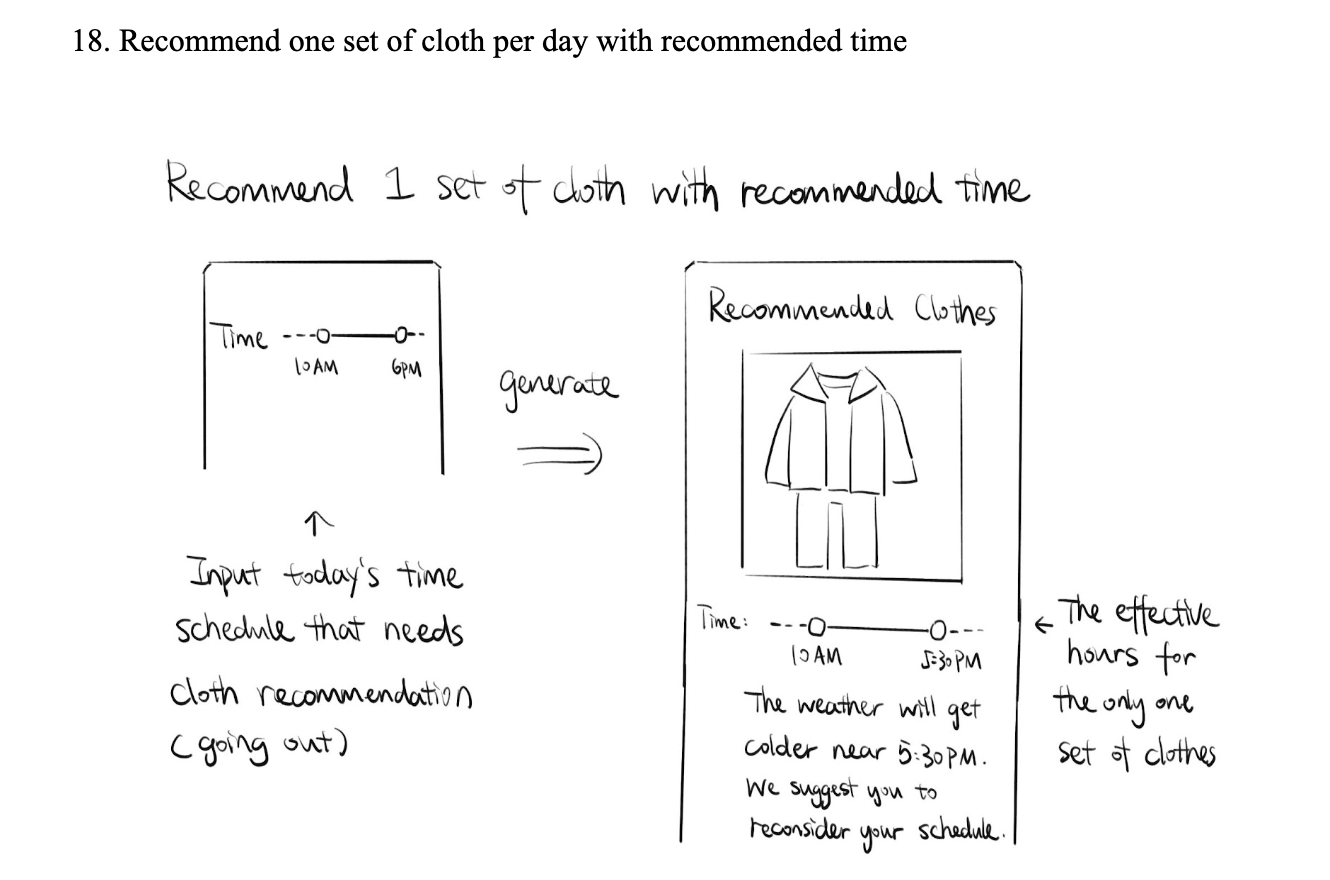 18. Recommend one set of cloth per day with recommended time
Recommend 1 set of cloth with recommended time
Time
10AM 6PM
generate
Input today's time
schedule that needs
cloth recommendation
(going out)
Recommended Clothes
Time:
10AM 5:30PM
The weather will get
colder near 5:30PM.
We suggest you to
reconsider your schedule.
The effective
hours for
the only one
set of clothes